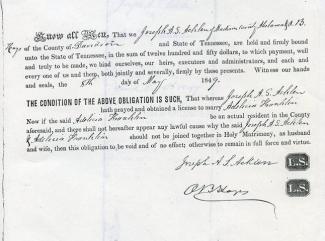 Know all Men, That we Joseph A. S. Acklen of Madison County Alabama & O. B.
Hays of the County of Davidson and State of Tennessee, are held and firmly bound
unto the State of Tennessee, in the sum of twelve hundred and fifty dollars, to which payment, well
and truly to be made, we bind ourselves, our heirs, executors and administrators, and each and
every one of us and them, both jointly and severally, firmly by these presents. Witness our hands
and seals, the 8th day of May 1849.
THE CONDITION OF THE ABOVE OBLIGATION IS SUCH, That whereas Joseph A. S. Acklen
hath prayed and obtained a license to marry Adelicia Franklin
Now if the said Adelicia Franklin be an actual resident in the County
aforesaid, and there shall not hereafter appear any lawful cause why the said Joseph A. S. Acklen
& Adelicia Franklin should not be joined together in Holy Matrimony, as husband
and wife, then this obligation to be void and of no effect; otherwise to remain in full force and virtue.
Joseph A. S. Acklen L.S.
O B Hays L.S.